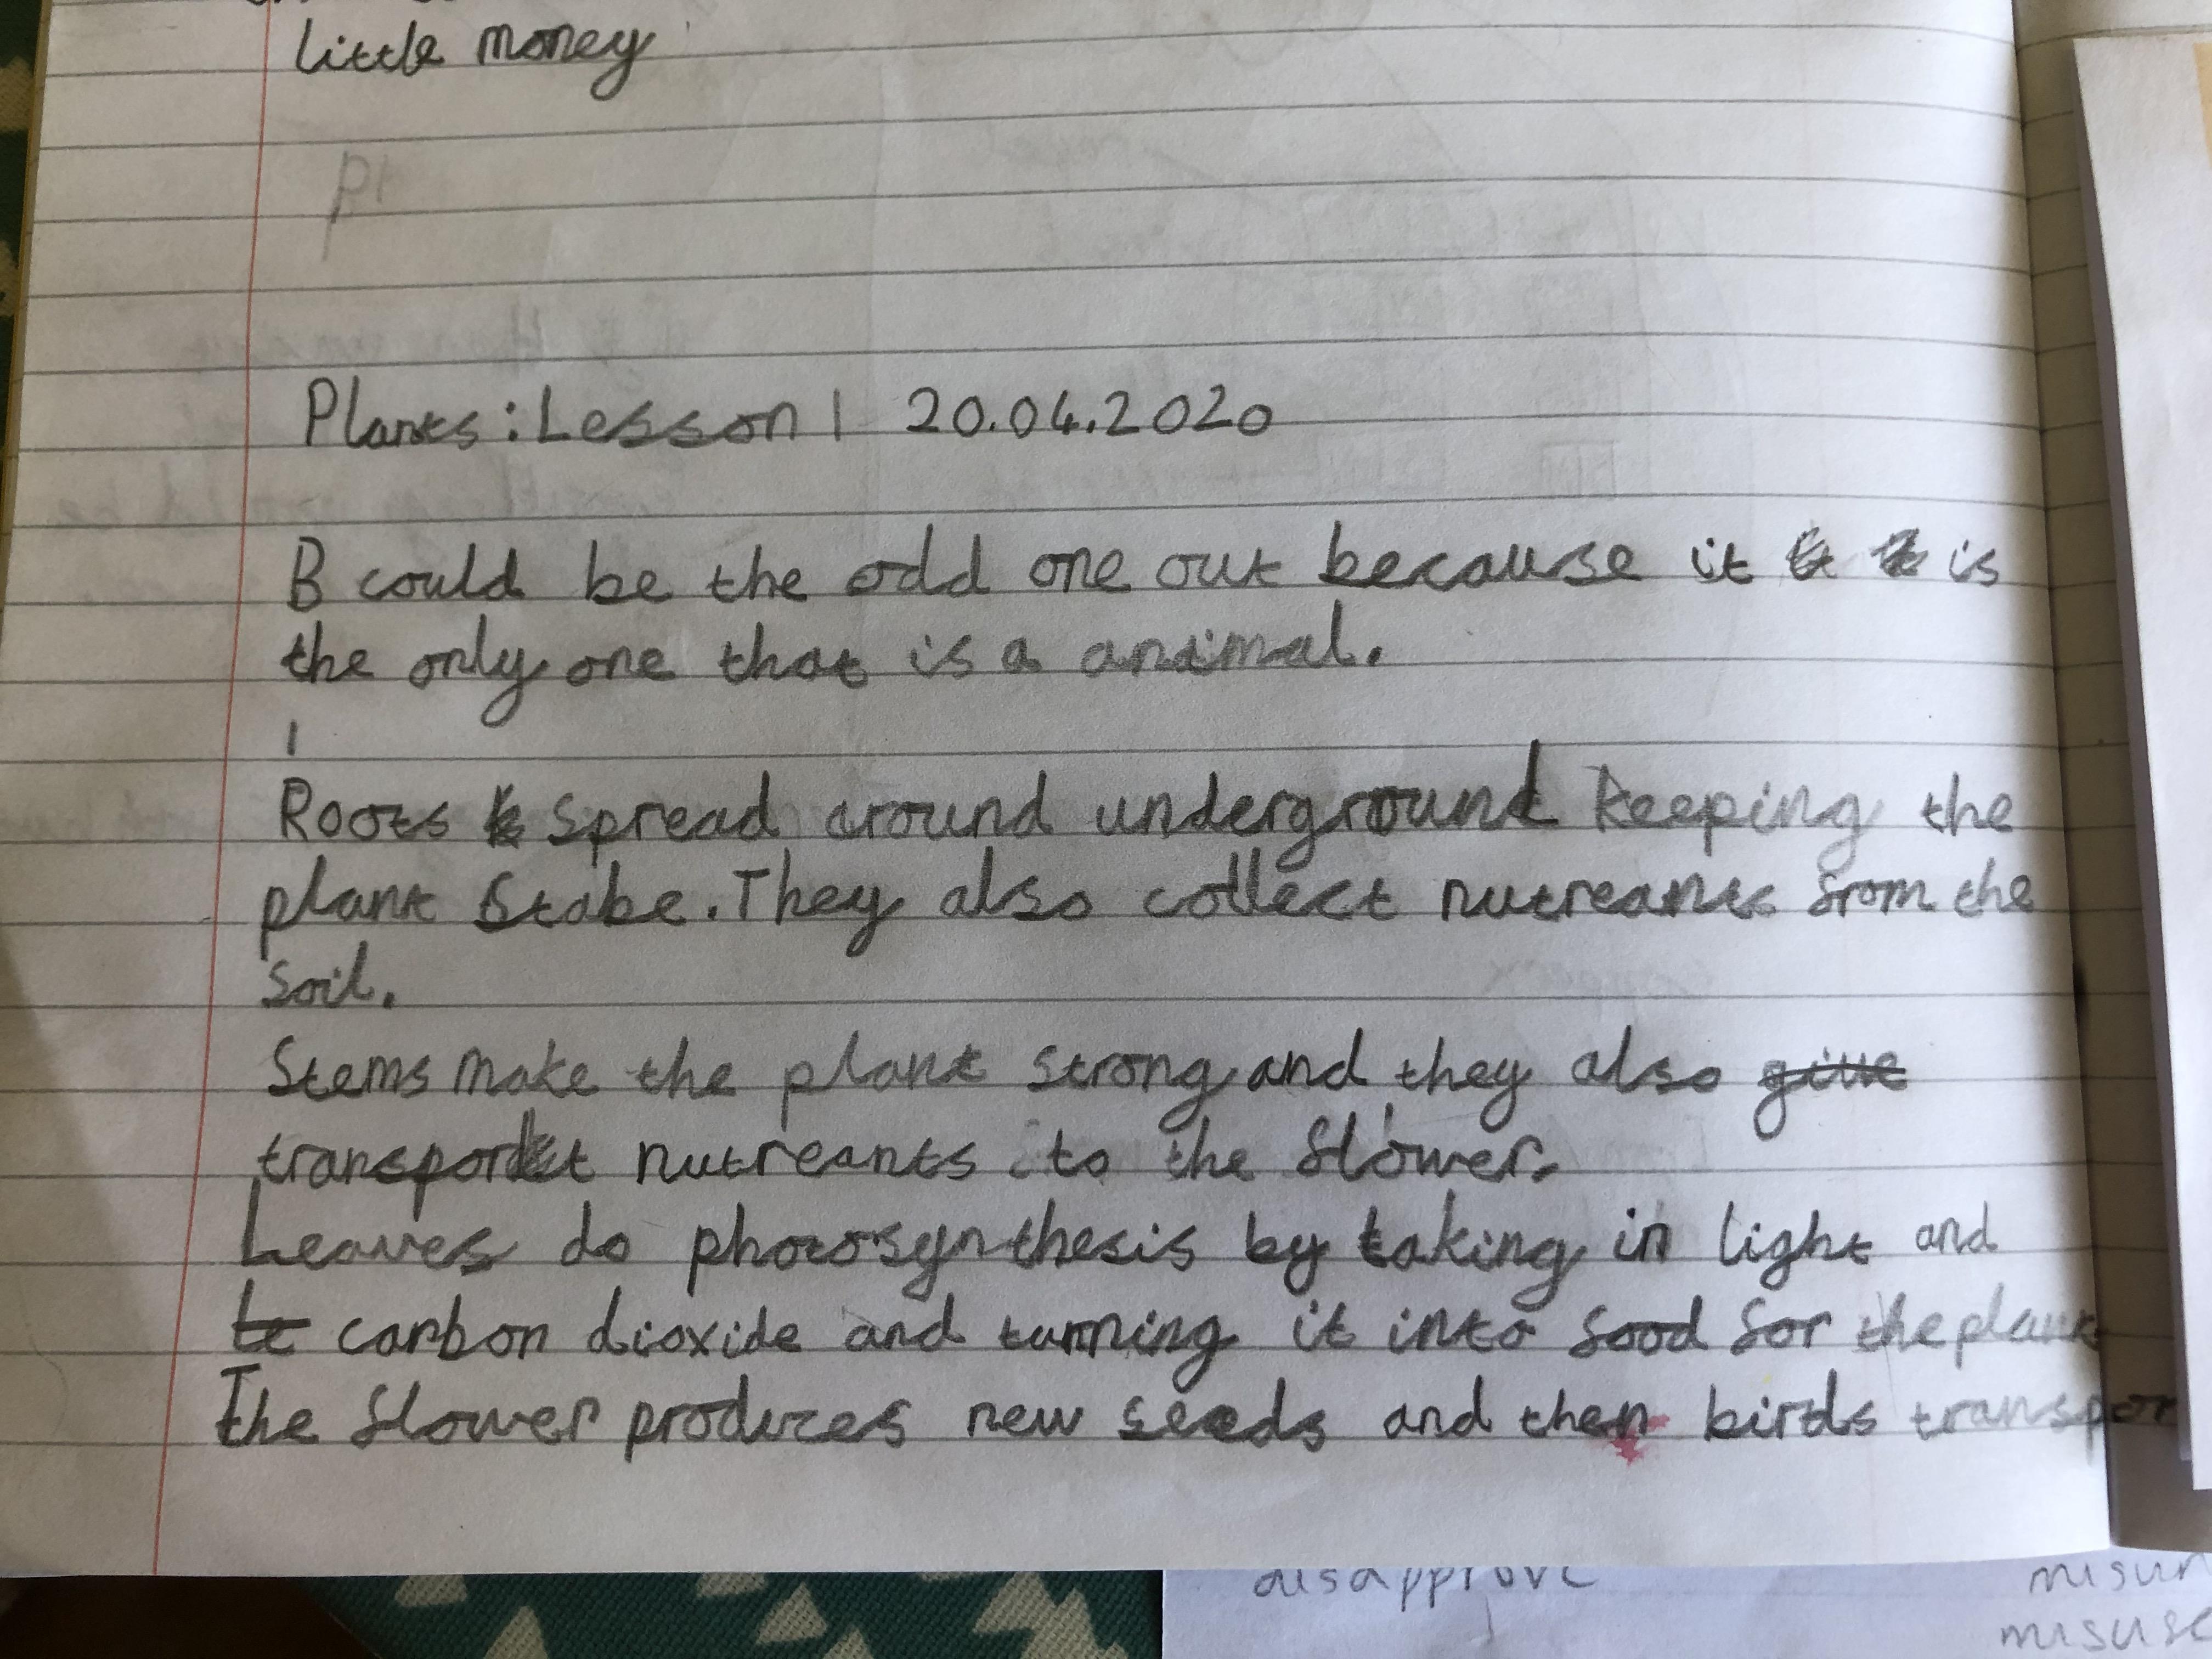 little money
Pl
Plants: Lesson 1 20.04.2020
B could be the odd one out because it is
the only one that is a animal.
Roots spread around underground keeping the
plant stabe. They also collect nutreants from the
soil.
Stems make the plant strong and they also give
transport nutreants to the flower.
Leaves do photosynthesis by taking in light and
te carbon dioxide and turning it into food for the plant
The flower produces new seeds and then birds transpor
disapprove
misun
misuse